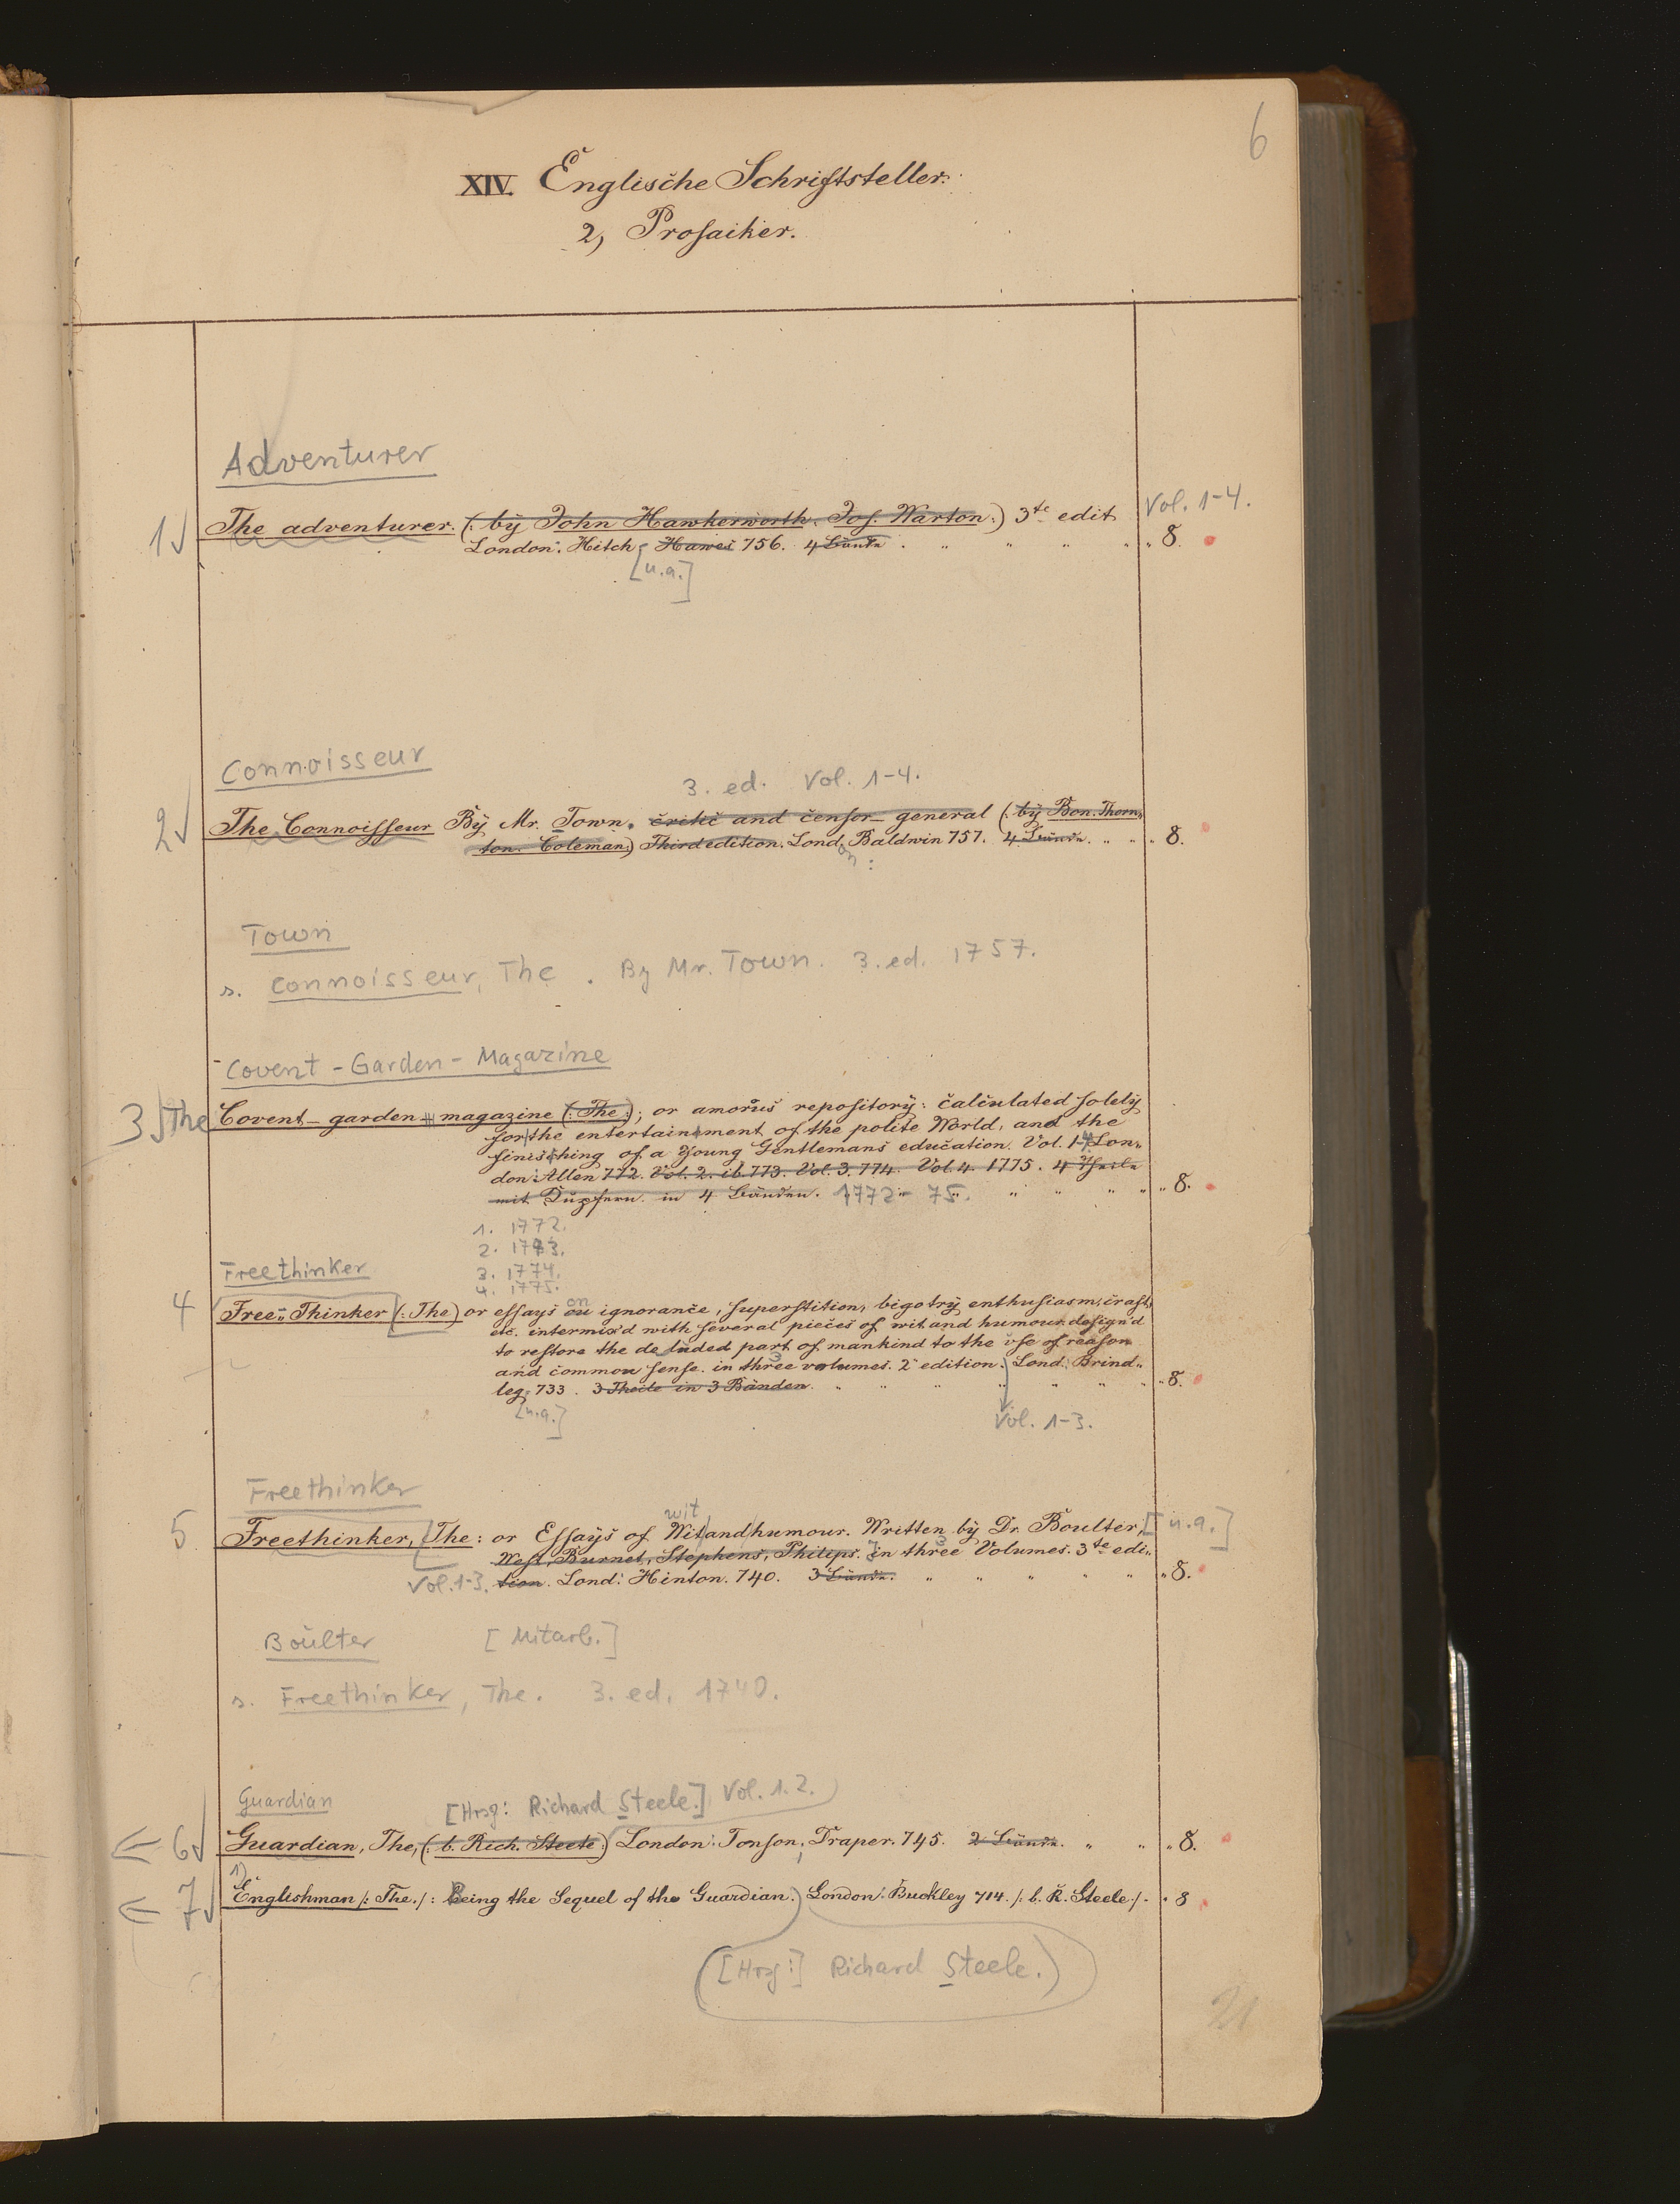 6
XIV. Englische Schriftsteller.
2, Prosaiker.
Adventurer
Vol. 1-4.
1 The adventurer. (: by John Hawkerworth. Jos. Warton :) 3te edit
London: Hitch, Hawes 756. 4 Bände . " " " " " 8.
[u.a.]
Connoisseur
3. ed. Vol. 1-4.
2 The Connoisseur By Mr. Town. critic and censor-general (: by Bon. Thorn,
ton. Coleman:) Third edition. London: Baldwin 757. 4 Bände. " " " 8.
Town
s. Connoisseur, The . By Mr. Town. 3. ed. 1757.
Covent-Garden-Magazine
3 The Covent-garden-magazine (: The :); or amorus repository: calculated solely
for the entertainment of the polite World, and the
finishing of a Young Gentlemans education. Vol. 1-4 Lon,,
don: Allen 772. Vol. 2. ib 773. Vol. 3. 774. Vol. 4. 1775. 4 Theile
mit Kupfern in 4 Bänden. 1772-75. " " " " " 8.
1. 1772.
2. 1773.
3. 1774.
4. 1775.
Freethinker
4 Free,, Thinker (: The) or essays on ignorance, superstition, bigotry, enthusiasm, craft,
etc. intermix'd with several pieces of wit and humour design'd
to restore the deluded part of mankind to the use of reason
and common sense. in three volumes. 2 edition. Lond: Brind,,
leg. 733. 3 Theile in 3 Bänden. " " " " " " " 8.
[u.a.]
Vol. 1-3.
Freethinker
wit
5 Freethinker, The: or Essays of Wit and humour. Written by Dr. Boulter, [u.a.]
West, Burnet, Stephens, Philips. In three 3 Volumes. 3te edi,,
Vol. 1-3. tion. Lond: Hinton. 740. 3 Bände. " " " " " " 8.
Boulter [Mitarb.]
s. Freethinker, The. 3. ed. 1740.
Guardian [Hrsg: Richard Steele.] Vol. 1.2.
6 Guardian, The, (: b. Rich. Steele :) London: Tonson, Draper. 745. 2 Bände. " " " 8.
1)
7 Englishman /: The. /: Being the Sequel of the Guardian. London: Buckley 714. /: b. R. Steele /. " 8
([Hrsg:] Richard Steele.)
21